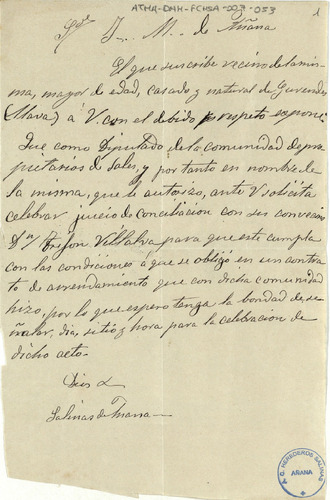 ATHA-DAH-FCHSA-223-053
1
Sr. Jz. M. de Añana
El que suscribe vecino de la mis-
ma, mayor de edad, casado y natural de Gurendes
(Alava) á V. con el debido respeto expone:
Que como Diputado de la comunidad de pro-
pietarios de Sales, y por tanto en nombre de
la misma, que le autorizo, ante V solicita
celebrar juicio de conciliacion con su convecino
Dn Trifon Villalva para que este cumpla
con las condiciones á que se obligó en un contra-
to de arrendamiento que con dicha comunidad
hizo, por lo que espero tenga la bondad de, se-
ñalar, dia, sitio y hora para la celebracion de
dicho acto.
Dios
Salinas de Añana
A. G. HEREDEROS SALINAS
AÑANA